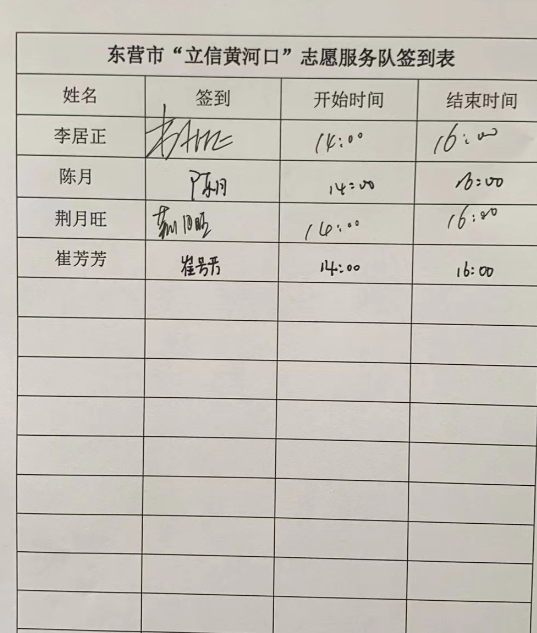 东营市“立信黄河口”志愿服务队签到表
姓名 签到 开始时间 结束时间
李居正 14:00 16:00
陈月 陈月 14:00 16:00
荆月旺 荆月旺 14:00 16:00
崔芳芳 崔芳芳 14:00 16:00